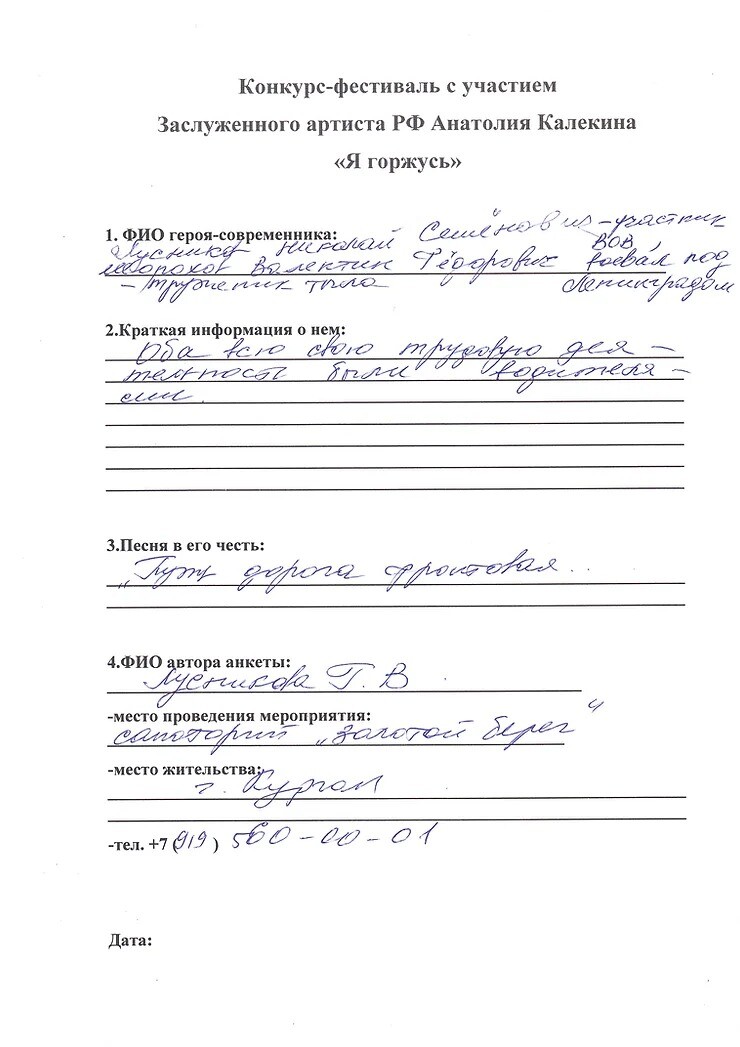 Конкурс-фестиваль с участием
Заслуженного артиста РФ Анатолия Калекина
«Я горжусь»
1. ФИО героя-современника:
Николай Семёнович - участник
ВОВ,
Валентин Фёдорович воевал под
- труженик тыла Ленинградом
2.Краткая информация о нем:
Оба всю свою трудовую дея -
тельность были водителя -
ми.
3.Песня в его честь:
„Путь дорога фронтовая..
4.ФИО автора анкеты:
Лусникова Г. В
-место проведения мероприятия:
санаторий „Золотой берег"
-место жительства:
г. Курган
-тел. +7 (919) 560-00-01
Дата: